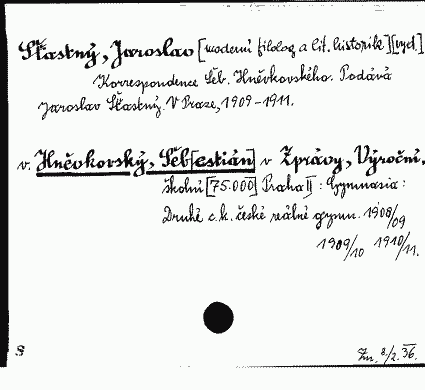 Šťastný, Jaroslav [moderní filolog a lit. historik] [vyd.]
Korrespondence Šeb. Hněvkovského. Podává
Jaroslav Šťastný. V Praze, 1909-1911.
v. Hněvkovský, Šeb[estián] v Zprávy, Výroční,
školní [75.000] Praha II : Gymnasia :
Druhé c. k. české reálné gymn. 1908/09
1909/10 1910/11.
S
Zn. 8/2. 36.